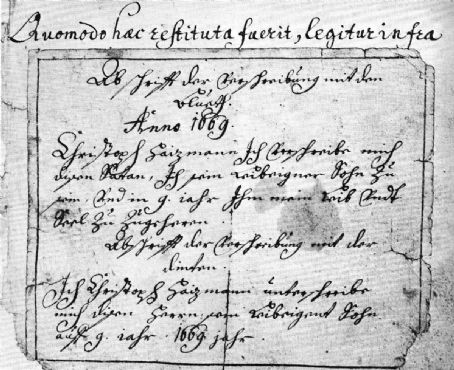 Quomodo haec restituta fuerit, legitur infra
Abschrifft der Verschreibung mit dem
bluett.
Anno 1669.
Christoph Haizmann Ich Verschreibe mich
disen Satan, Ich sein leibeigner Sohn Zu
sein, Vnd in 9. iahr Ihm mein leib Vndt
Seel Zu Zugeheren
Abschrifft der Verschreibung mit der
dinten.
Ich Christoph Haizmann unterschreibe
mich disen Herrn sein leibeigent Sohn
auff 9. iahr. 1669 jahr.